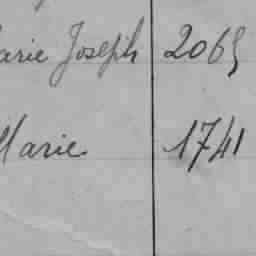 arie Joseph 2065
Marie 1741